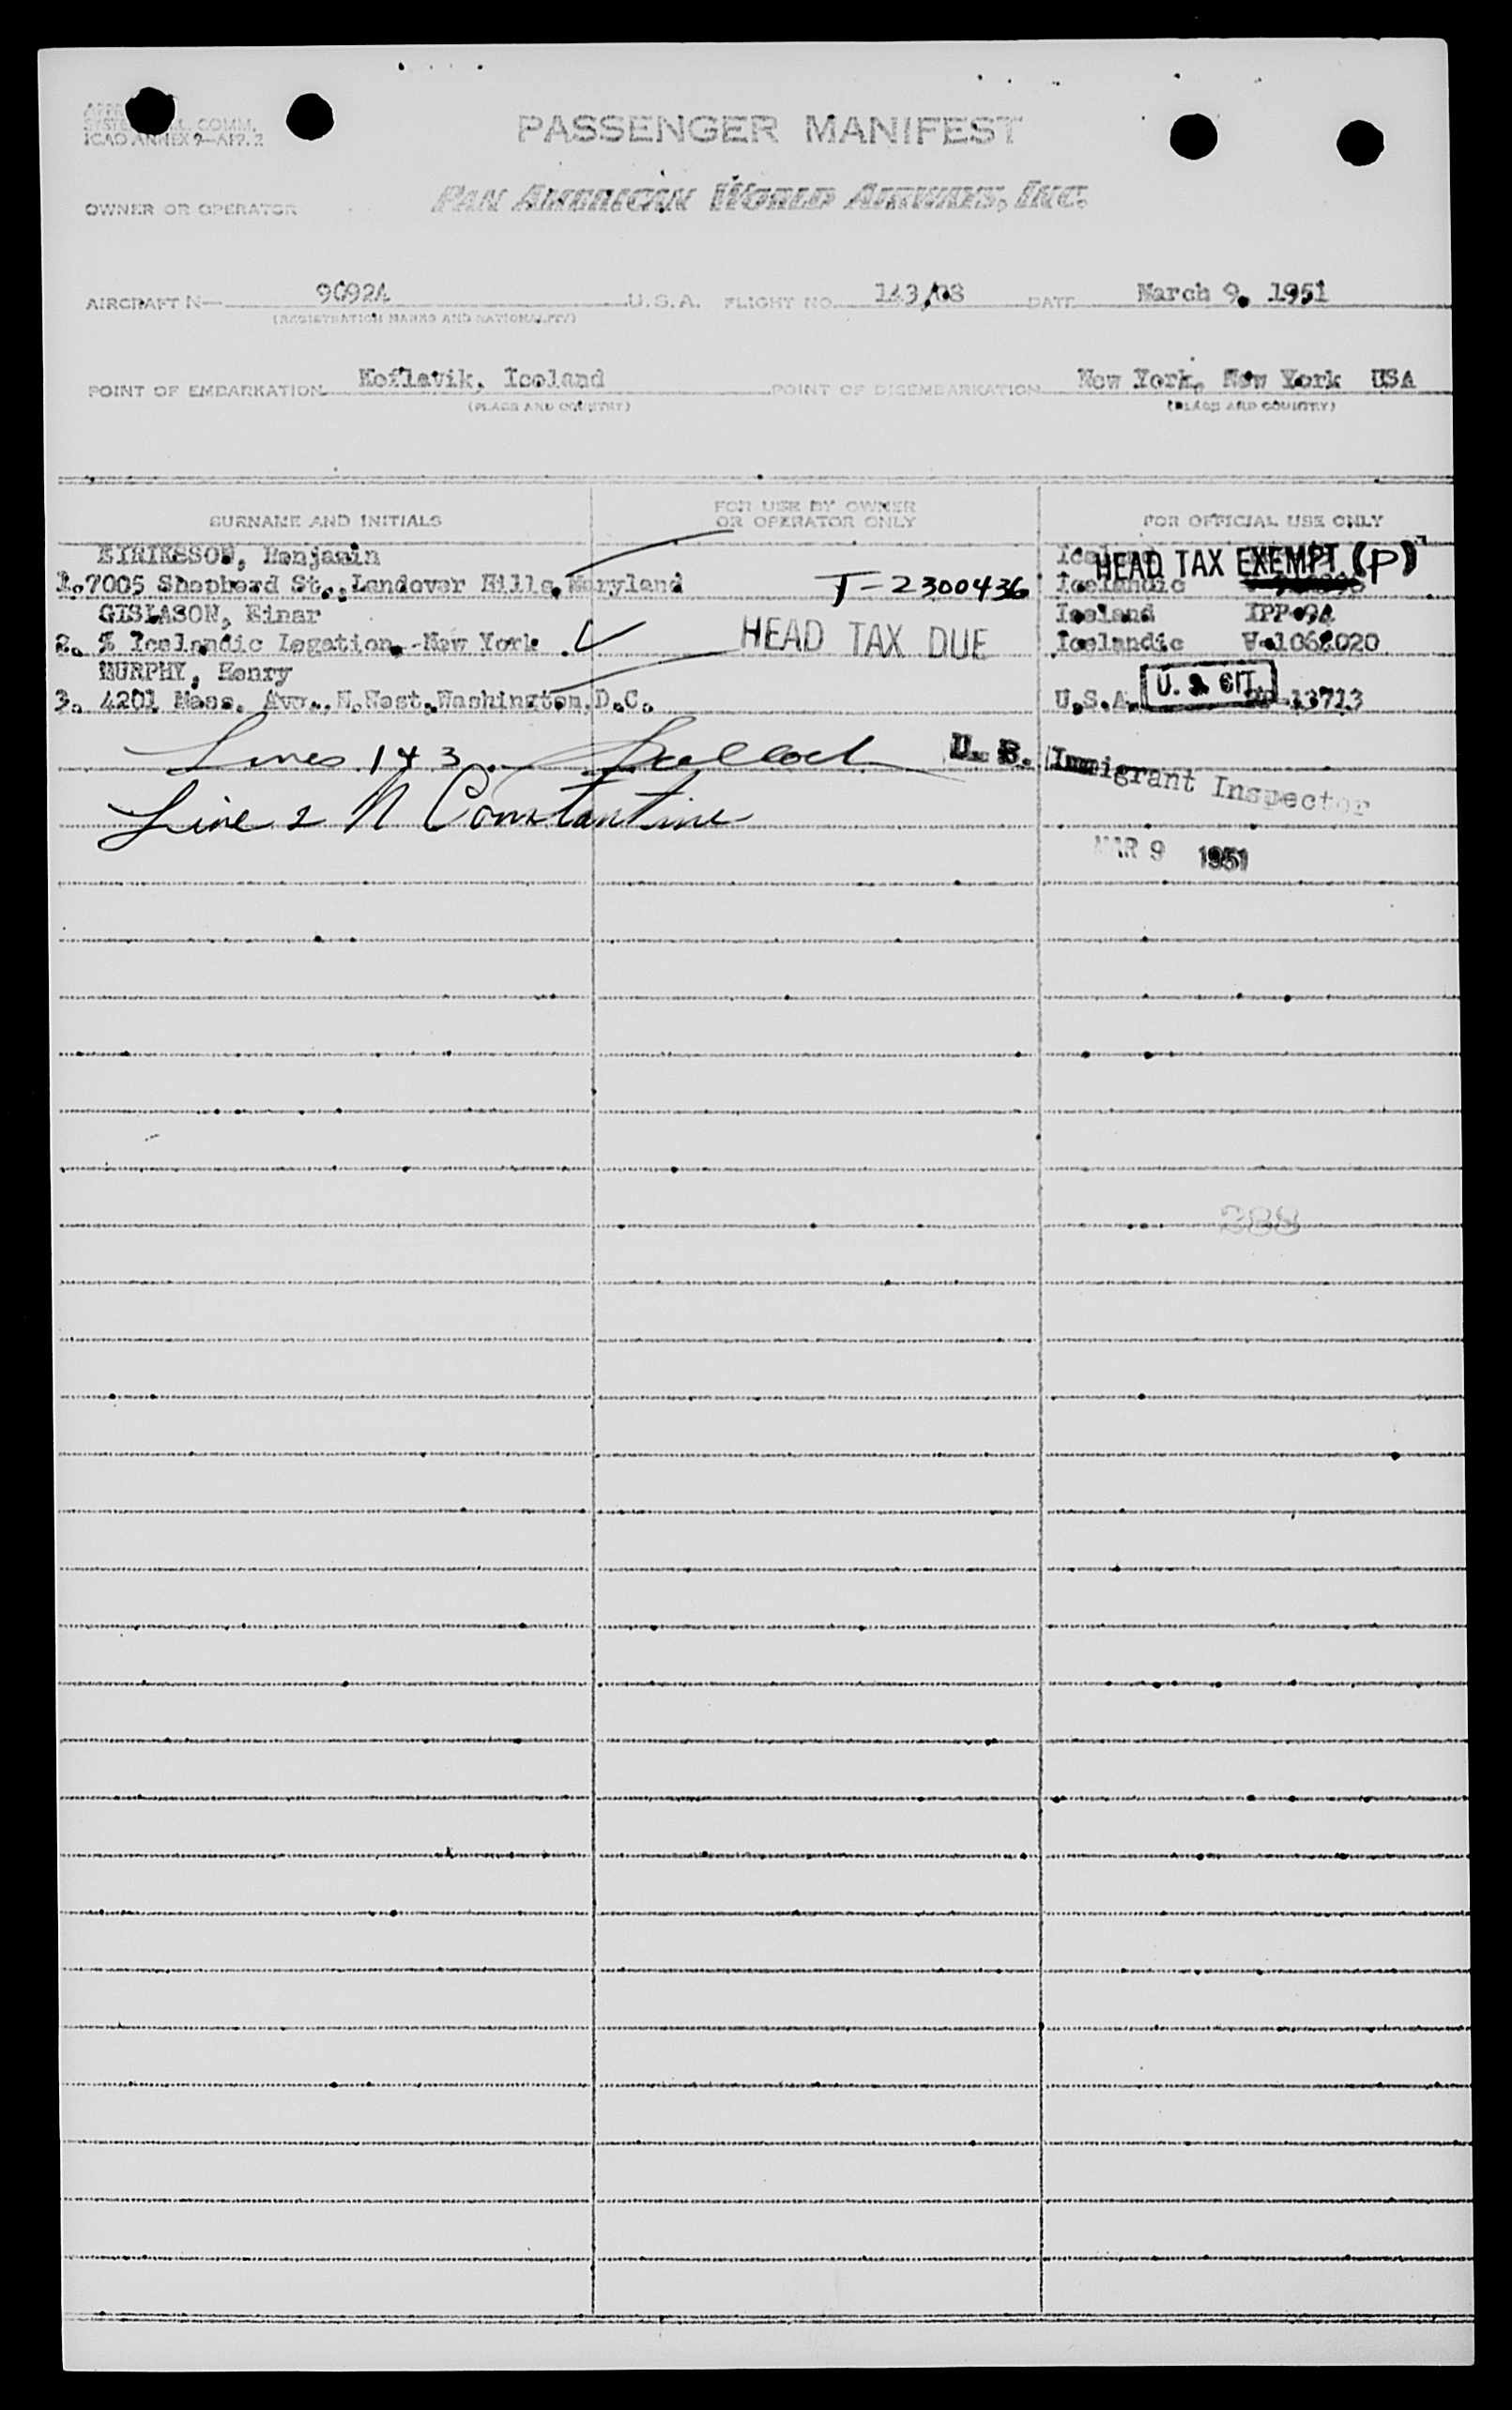 ICAO ANNEX 9—APP. 2
PASSENGER MANIFEST
OWNER OR OPERATOR PAN AMERICAN WORLD AIRWAYS, INC.
AIRCRAFT N— U.S.A. FLIGHT NO. DATE March 9, 1951
(REGISTRATION MARKS AND NATIONALITY)
POINT OF EMBARKATION Keflavik, Iceland POINT OF DISEMBARKATION New York, New York USA
(PLACE AND COUNTRY) (PLACE AND COUNTRY)
SURNAME AND INITIALS FOR USE BY OWNER OR OPERATOR ONLY FOR OFFICIAL USE ONLY
EIRIKSSON, Benjamin HEAD TAX EXEMPT (P)
1. 7005 Shepherd St., Landover Hills, Maryland T-2300436 Icelandic
GISLASON, Einar Iceland
2. % Icelandic Legation, New York HEAD TAX DUE Icelandic V-1068020
MURPHY, Henry U. S. CIT.
3. 4201 Mass. Ave., N.West, Washington, D.C. U.S.A. 13713
Lines 1 & 3 U. S. Immigrant Inspector
Line 2 N Constantine
MAR 9 1951
388